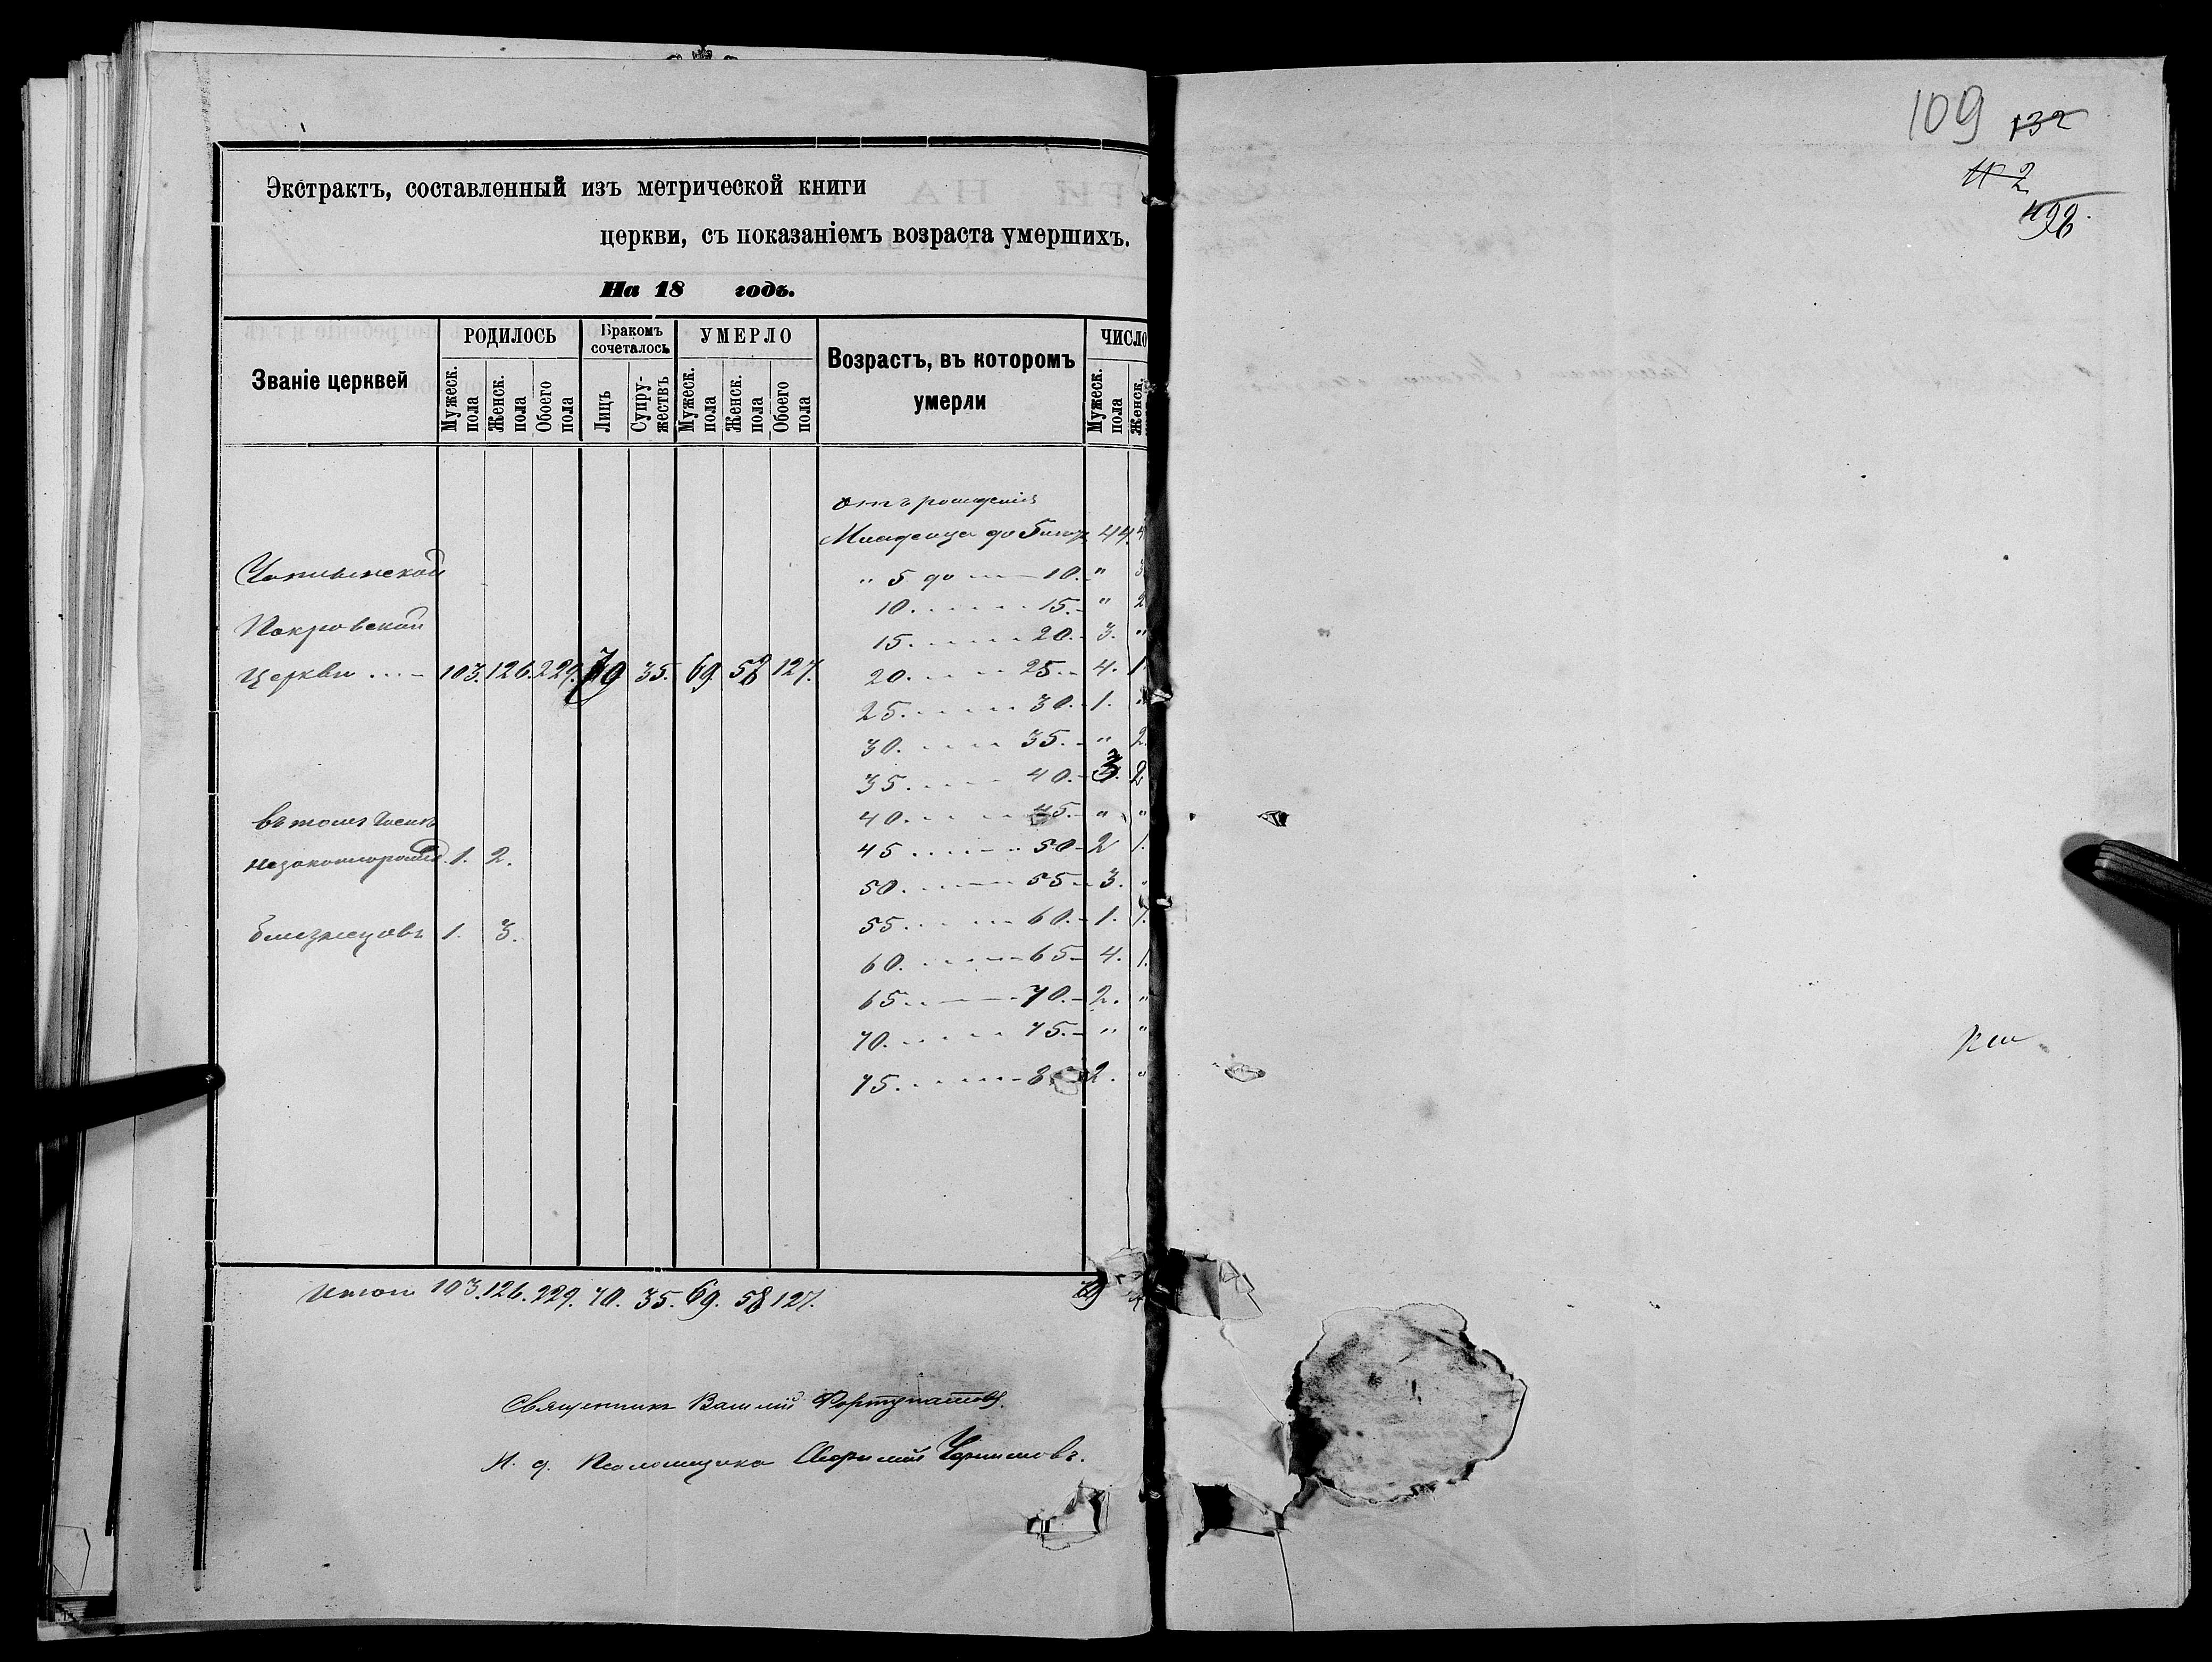 Экстрактъ, составленный изъ метрической книги
церкви, съ показаніемъ возраста умершихъ.
На 18 годъ.
Званіе церквей
РОДИЛОСЬ
Мужеск. пола
Женск. пола
Обоего пола
Бракомъ сочеталось
Лицъ
Супружествъ
УМЕРЛО
Мужеск. пола
Женск. пола
Обоего пола
Возрастъ, въ которомъ умерли
ЧИСЛО
Мужеск. пола
Женск.
отъ рожденія
Младенца до 5 44. 4
" 5 до 10. " 3
10. 15. " 2
15. 20. 3. "
20. 25. 4. 1
25. 30. 1. "
30. 35. " 2.
35. 40. 3. 2
40. 45. " "
45 50 2 1.
50. 55 3. "
55. 60. 1. 1.
60. 65 4. 1.
65. 70. 2. "
70. 75. " "
75. 8 2. "
Покровской
Церкви 103. 126. 229. 70 35. 69. 58 127.
въ томъ числѣ
незаконнорожд 1. 2.
близнецовъ 1. 3.
Итого 103. 126. 229. 70. 35. 69. 58 127. 69
Священникъ Василій Фортунатовъ.
И. д. Псаломщика
109
132